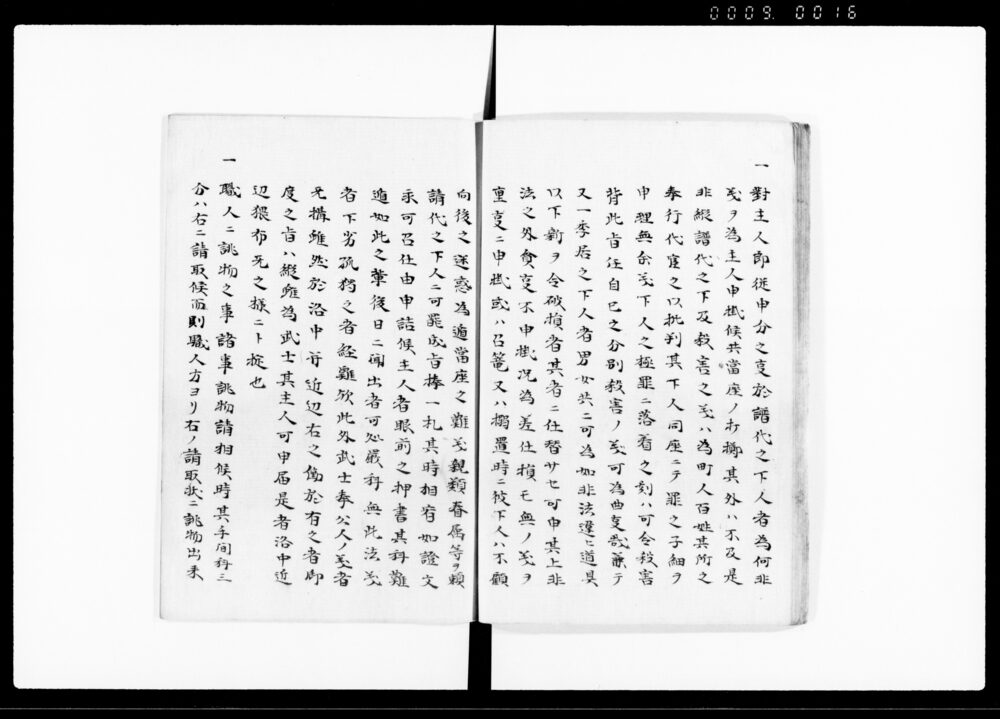 0009. 0016
一
對主人郎従申分之㕝於譜代之下人者為何非
義ヲ為主人申掛候共當座ノ打擲其外ハ不及是
非縦譜代之下及殺害之義ハ為町人百姓其所之
奉行代官之以批判其下人同座ニテ罪之子細ヲ
申理無余義下人之極罪ニ落着之刻ハ可令殺害
背此旨任自己之分別殺害ノ義可為曲㕝哉兼テ
又一季居之下人者男女共ニ可為如非法違ヒ道具
以下新ヲ令破損者其者ニ仕替サセ可申其上非
法之外食㕝不申掛况為差仕損モ無ノ義ヲ
重㕝ニ申掛或ハ召篭又ハ搦置時ニ彼下人ハ不顧
向後之迷惑為遁當座之難義親類眷属等ヲ頼
請代之下人ニ可罷成旨捧一札其時相宥如證文
永可召仕由申詰候主人者眼前之押書其科難
遁如此之輩後日ニ聞出者可処嚴科無此法義
者下劣孤独之者経難歟此外武士奉公人ノ義者
无構雖然於洛中并近辺右之働於有之者御
度之旨ハ縦雖為武士其主人可申届是者洛中近
辺猥布无之様ニト掟也
一
職人ニ誂物之事諸事誂物請相候時其手間料三
分ハ右ニ請取候而則職人方ヨリ右ノ請取状ニ誂物出来